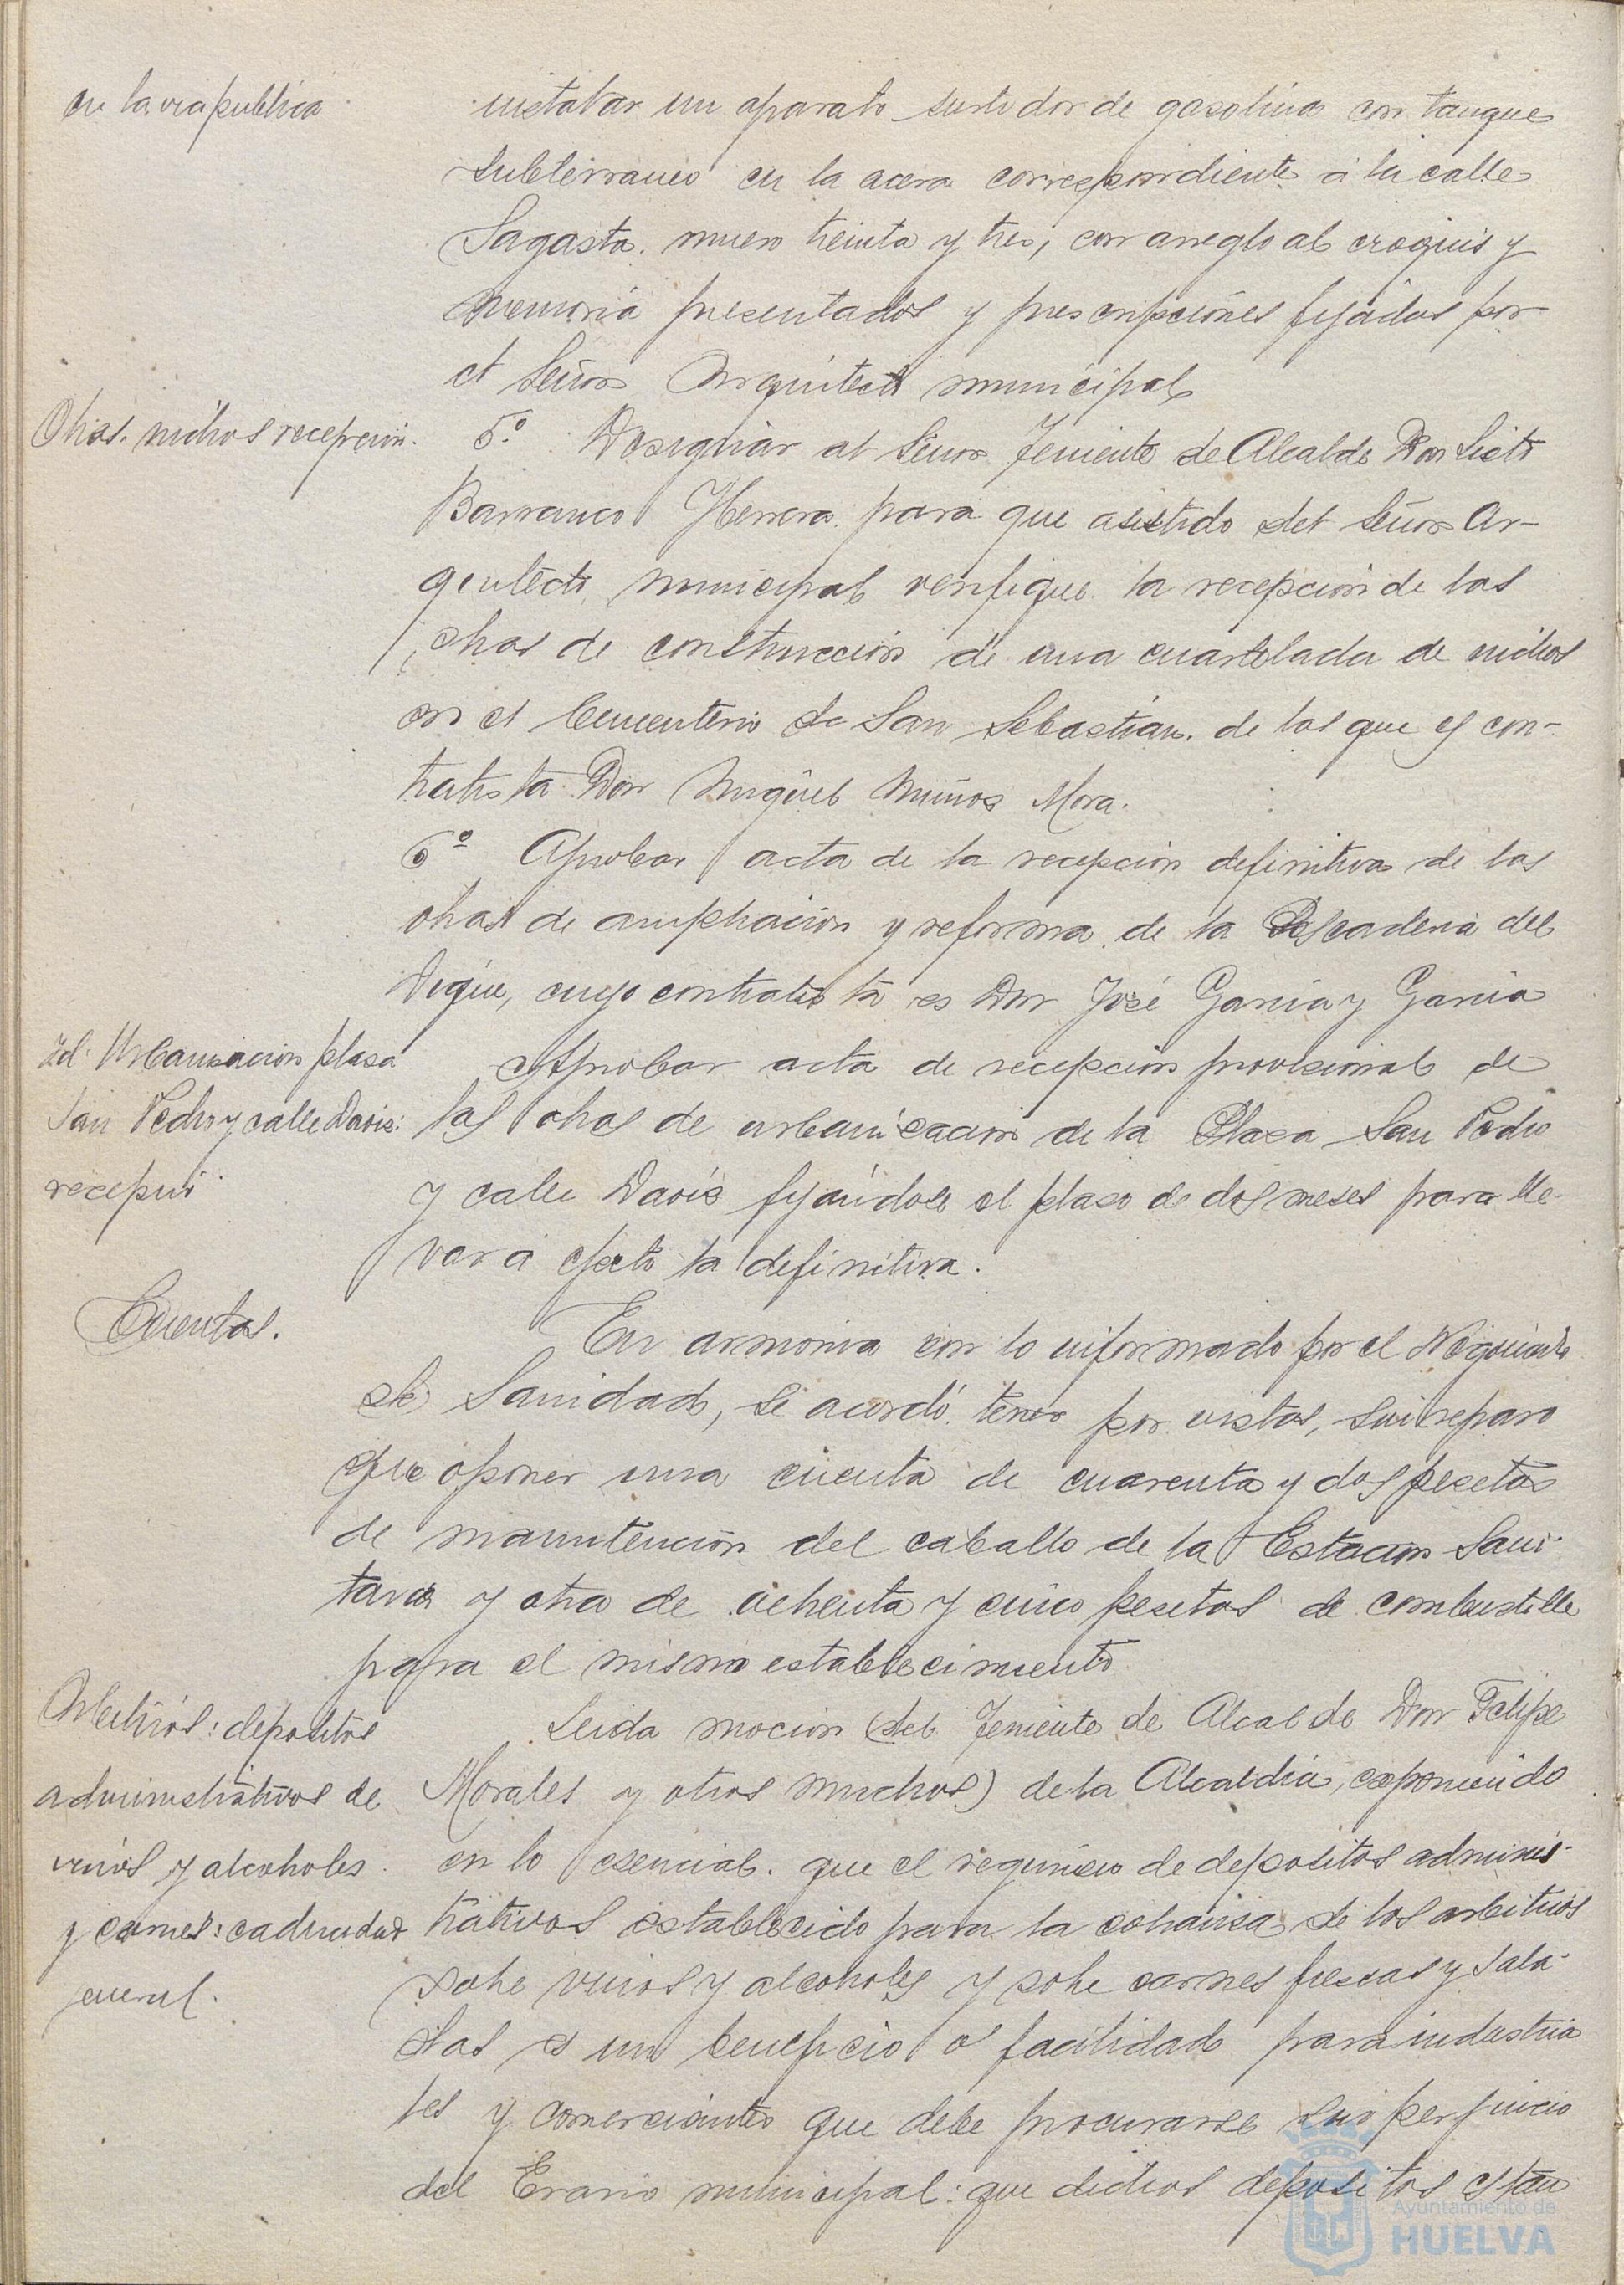 en la via publica
instalar un aparato surtidor de gasolina con tanque
subterraneo en la acera correspondiente á la calle
Sagasta. muero treinta y tres, con arreglo al croquis y
memoria presentados y prescripciones fijadas por
el Señor Arquitecto municipal
Obras. nichos recepción.
5.º Designar al Señor Teniente de Alcalde Don Sixto
Barranco Herrera para que asistido del Señor Ar-
quitecto municipal verifique la recepción de las
obras de construccion de una cuartelada de nichos
en el Cementerio de San Sebastian. de las que es con-
tratista Don Miguel Muños Mora.
6º Aprobar acta de la recepcion definitiva de las
obras de ampliacion y reforma de la Pescaderia del
Dique, cuyo contratista es Don José Garcia y Garcia
Id. Urbanizacion plasa
San Pedro y calle Daoiz:
recepcion
Aprobar acta de recepcion provisional de
las obras de urbanizacion de la Plaza San Pedro
y calle Daoiz fijandole el plaso de dos meses para lle-
var á efecto la definitiva.
Cuentas.
En armonia con lo informado por el Negociado
de Sanidad, se acordó tener por vistas, sin reparo
que oponer una cuenta de cuarenta y dos pesetas
de manutencion del caballo de la Estacion Sani-
taria y otra de ochenta y cinco pesetas de combustible
para el mismo establecimiento
Arbitrios: depositos
administrativos de
vinos y alcoholes
y carnes: caducidad
general.
Leida mocion (del Teniente de Alcalde Don Felipe
Morales y otros muchos) de la Alcaldia, exponiendo
en lo esencial. que el regimen de depositos adminis-
trativos establecido para la cobranza de los arbitrios
sobre vinos y alcoholes y sobre carnes frescas y sala-
das es un beneficio ó facilidad para industria
les y comerciantes que debe procurarse sin perjuicio
del Erario municipal: que dichos depositos estan
Ayuntamiento de
HUELVA